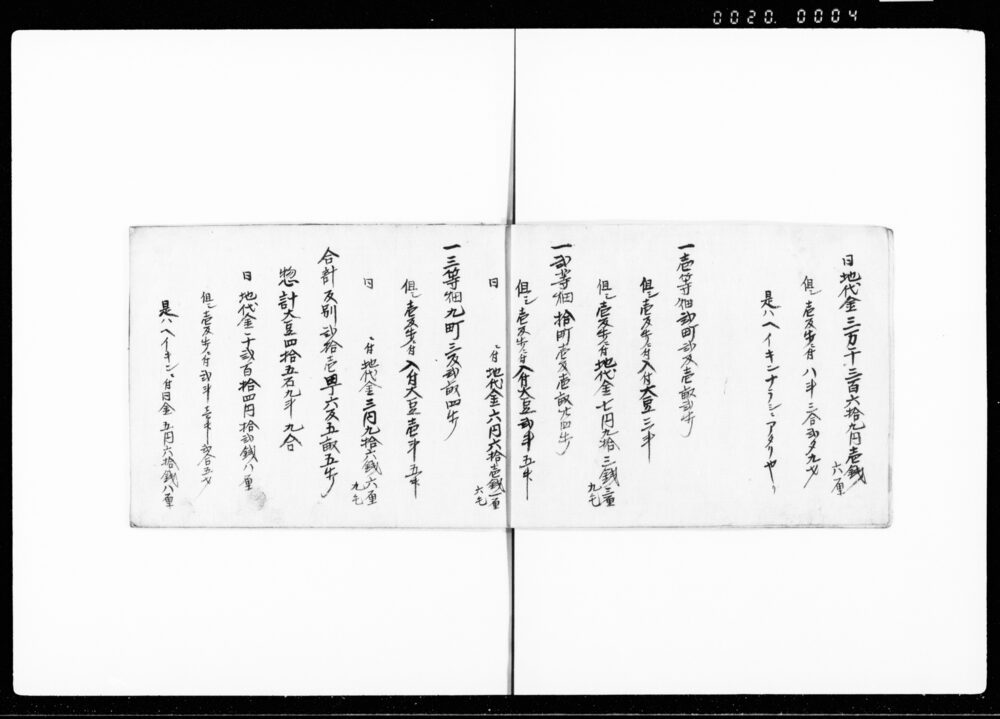 0020. 0004
日 地代金三万千三百六拾九円壱銭六厘
但シ壱反歩ニ付 八斗三合弐夕九才
是ハヘイキンナラシアタリ也
一壱等畑弐町弐反壱畝弐歩
但シ壱反歩ニ付入付大豆三斗
但シ壱反歩ニ付地代金七円九拾三銭二厘九毛
一弐等畑拾町壱反壱畝廿四歩
但シ壱反歩ニ付入付大豆弐斗五升
日 〃付地代金六円六拾壱銭一厘六毛
一三等畑九町三反弐畝四歩
但シ壱反歩ニ付入付大豆壱斗五升
日 〃付地代金三円九拾六銭六厘九毛
合計反別弐拾壱町六反五畝五歩
惣計大豆四拾五石九斗九合
日 地代金千弐百拾四円拾弐銭八厘
但シ壱反歩ニ付弐斗壱升弐合五才
是ハヘイキン付日金五円六拾銭八厘